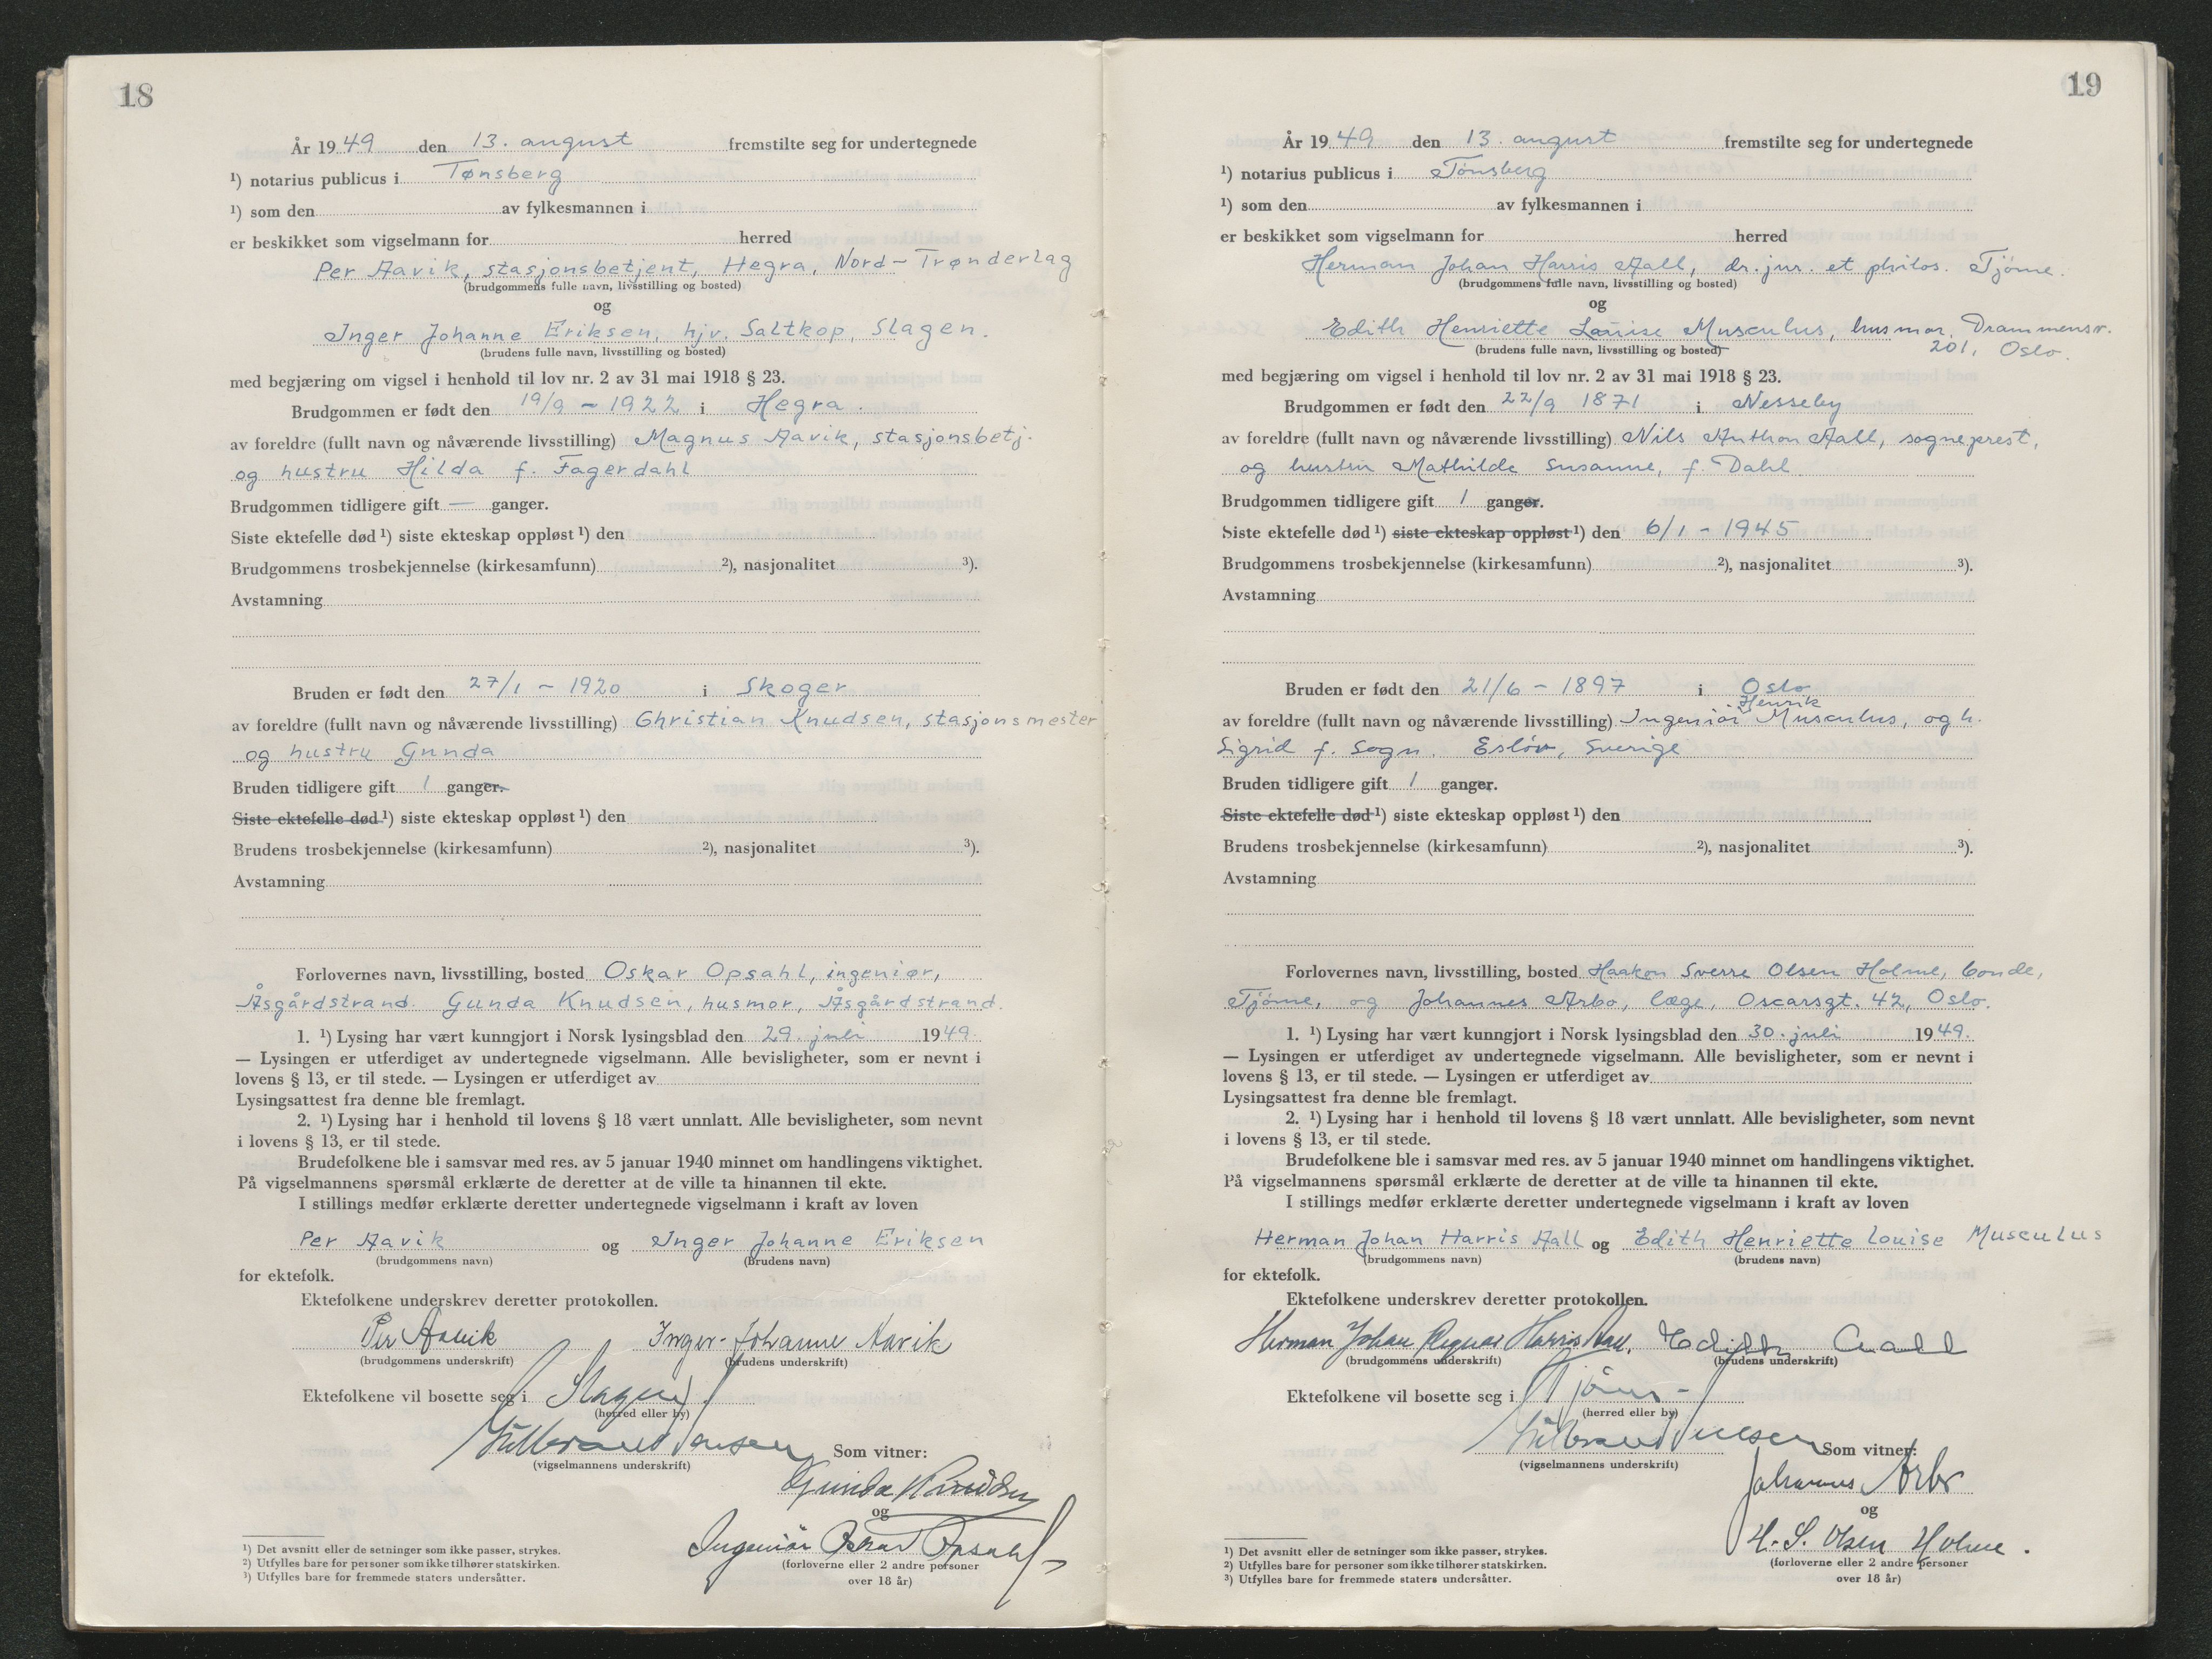 18
År 1949 den 13. august fremstilte seg for undertegnede
¹) notarius publicus i Tønsberg
¹) som den av fylkesmannen i
er beskikket som vigselmann for herred
Per Aavik, stasjonsbetjent, Hegra, Nord-Trønderlag
(brudgommens fulle navn, livsstilling og bosted)
og
Inger Johanne Eriksen, hjv. Saltkop, Slagen.
(brudens fulle navn, livsstilling og bosted)
med begjæring om vigsel i henhold til lov nr. 2 av 31 mai 1918 § 23.
Brudgommen er født den 19/9 - 1922 i Hegra.
av foreldre (fullt navn og nåværende livsstilling) Magnus Aavik, stasjonsbetj.
og hustru Hilda f. Fagerdahl
Brudgommen tidligere gift — ganger.
Siste ektefelle død ¹) siste ekteskap oppløst ¹) den
Brudgommens trosbekjennelse (kirkesamfunn) ²), nasjonalitet ³).
Avstamning
Bruden er født den 27/1 - 1920 i Skoger
av foreldre (fullt navn og nåværende livsstilling) Christian Knudsen, stasjonsmester
og hustru Gunda
Bruden tidligere gift 1 ganger.
Siste ektefelle død ¹) siste ekteskap oppløst ¹) den
Brudens trosbekjennelse (kirkesamfunn) ²), nasjonalitet ³).
Avstamning
Forlovernes navn, livsstilling, bosted Oskar Opsahl, ingeniør,
Åsgårdstrand. Gunda Knudsen, husmor, Åsgårdstrand.
1. ¹) Lysing har vært kunngjort i Norsk lysingsblad den 29. juli 1949.
— Lysingen er utferdiget av undertegnede vigselmann. Alle bevisligheter, som er nevnt i
lovens § 13, er til stede. — Lysingen er utferdiget av
Lysingsattest fra denne ble fremlagt.
2. ¹) Lysing har i henhold til lovens § 18 vært unnlatt. Alle bevisligheter, som nevnt
i lovens § 13, er til stede.
Brudefolkene ble i samsvar med res. av 5 januar 1940 minnet om handlingens viktighet.
På vigselmannens spørsmål erklærte de deretter at de ville ta hinannen til ekte.
I stillings medfør erklærte deretter undertegnede vigselmann i kraft av loven
Per Aavik og Inger Johanne Eriksen
(brudgommens navn) (brudens navn)
for ektefolk.
Ektefolkene underskrev deretter protokollen.
Per Aavik Inger-Johanne Aavik
(brudgommens underskrift) (brudens underskrift)
Ektefolkene vil bosette seg i Slagen
(herred eller by)
Som vitner:
(vigselmannens underskrift)
Gunda Knudsen
og
Ingeniør Oskar Opsahl
(forloverne eller 2 andre personer
over 18 år)
¹) Det avsnitt eller de setninger som ikke passer, strykes.
²) Utfylles bare for personer som ikke tilhører statskirken.
³) Utfylles bare for fremmede staters undersåtter.
19
År 1949 den 13. august fremstilte seg for undertegnede
¹) notarius publicus i Tønsberg
¹) som den av fylkesmannen i
er beskikket som vigselmann for herred
Herman Johan Harris Aall, dr. jur. et philos. Tjöme.
(brudgommens fulle navn, livsstilling og bosted)
og
Edith Henriette Louise Musculus, husmor, Drammensv.
201, Oslo.
(brudens fulle navn, livsstilling og bosted)
med begjæring om vigsel i henhold til lov nr. 2 av 31 mai 1918 § 23.
Brudgommen er født den 22/9 1871 i Nesseby
av foreldre (fullt navn og nåværende livsstilling) Nils Anthon Aall, sogneprest,
og hustru Mathilde Susanne, f. Dahl
Brudgommen tidligere gift 1 ganger.
Siste ektefelle død ¹) siste ekteskap oppløst ¹) den 6/1 - 1945
Brudgommens trosbekjennelse (kirkesamfunn) ²), nasjonalitet ³).
Avstamning
Bruden er født den 21/6 - 1897 i Oslo
av foreldre (fullt navn og nåværende livsstilling) Ingeniör Henrik Musculus, og h.
Sigrid f. Sogn. Eslöv, Sverige
Bruden tidligere gift 1 ganger.
Siste ektefelle død ¹) siste ekteskap oppløst ¹) den
Brudens trosbekjennelse (kirkesamfunn) ²), nasjonalitet ³).
Avstamning
Forlovernes navn, livsstilling, bosted Haakon Sverre Olsen Holme, bonde,
Tjöme, og Johannes Arbo, læge, Oscarsgt. 42, Oslo.
1. ¹) Lysing har vært kunngjort i Norsk lysingsblad den 30. juli 1949.
— Lysingen er utferdiget av undertegnede vigselmann. Alle bevisligheter, som er nevnt i
lovens § 13, er til stede. — Lysingen er utferdiget av
Lysingsattest fra denne ble fremlagt.
2. ¹) Lysing har i henhold til lovens § 18 vært unnlatt. Alle bevisligheter, som nevnt
i lovens § 13, er til stede.
Brudefolkene ble i samsvar med res. av 5 januar 1940 minnet om handlingens viktighet.
På vigselmannens spørsmål erklærte de deretter at de ville ta hinannen til ekte.
I stillings medfør erklærte deretter undertegnede vigselmann i kraft av loven
Herman Johan Harris Aall og Edith Henriette Louise Musculus
(brudgommens navn) (brudens navn)
for ektefolk.
Ektefolkene underskrev deretter protokollen.
Herman Johan Harris Aall. Edith Aall
(brudgommens underskrift) (brudens underskrift)
Ektefolkene vil bosette seg i Tjöme -
(herred eller by)
Som vitner:
(vigselmannens underskrift)
Johannes Arbo
og
H. S. Olsen Holme.
(forloverne eller 2 andre personer
over 18 år)
¹) Det avsnitt eller de setninger som ikke passer, strykes.
²) Utfylles bare for personer som ikke tilhører statskirken.
³) Utfylles bare for fremmede staters undersåtter.